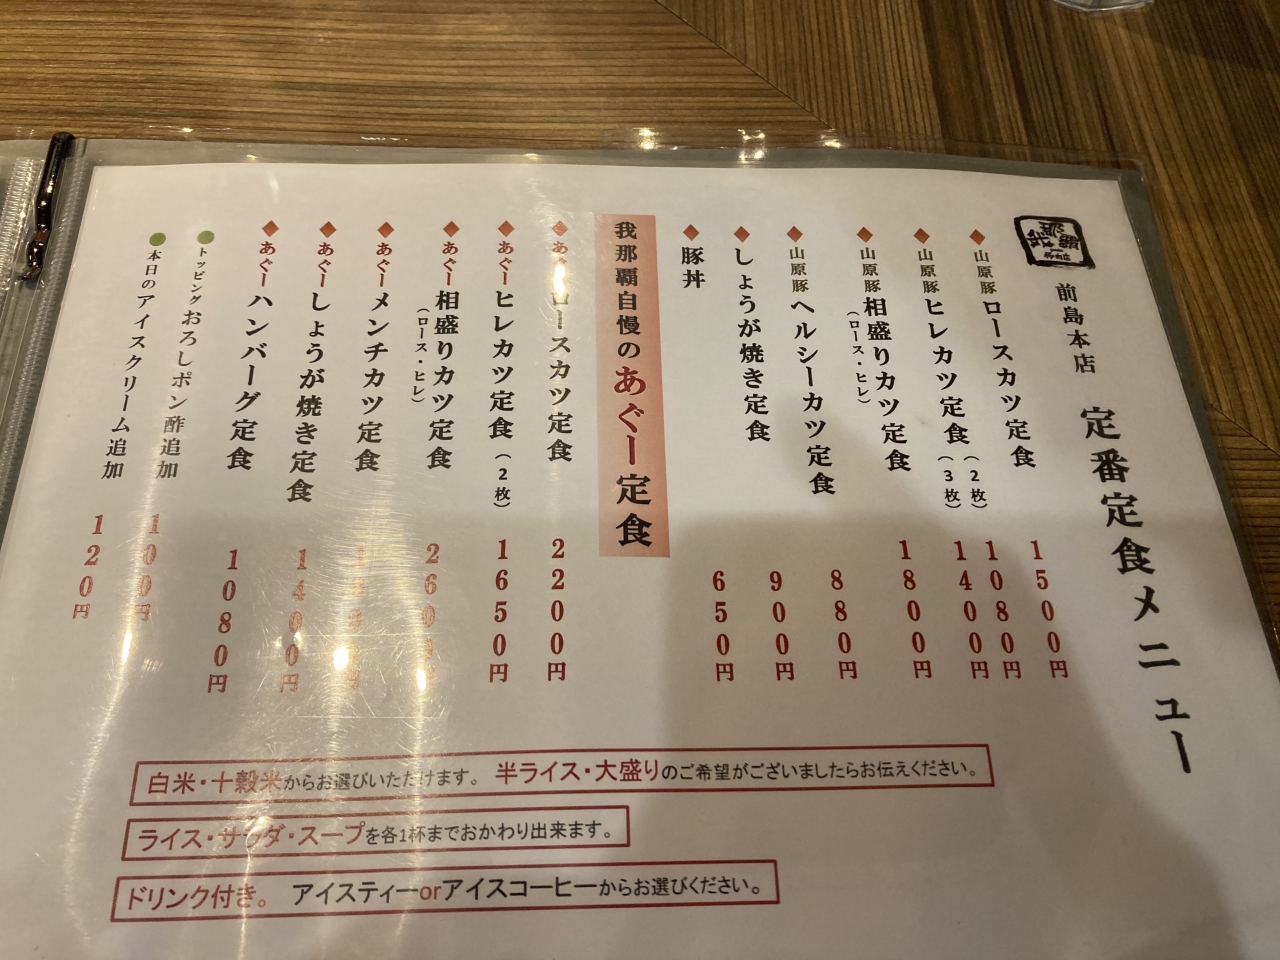 前島本店 定番定食メニュー
◆山原豚ロースカツ定食 1500円
◆山原豚ヒレカツ定食(2枚) 1080円
(3枚) 1400円
◆山原豚相盛りカツ定食 1800円
(ロース・ヒレ)
◆山原豚ヘルシーカツ定食 880円
◆しょうが焼き定食 900円
◆豚丼 650円
我那覇自慢のあぐー定食
◆あぐーロースカツ定食 2200円
◆あぐーヒレカツ定食(2枚) 1650円
◆あぐー相盛りカツ定食
(ロース・ヒレ)
◆あぐーメンチカツ定食
◆あぐーしょうが焼き定食 1400円
◆あぐーハンバーグ定食 1080円
●トッピングおろしポン酢追加 100円
●本日のアイスクリーム追加 120円
白米・十穀米からお選びいただけます。 半ライス・大盛りのご希望がございましたらお伝えください。
ライス・サラダ・スープを各1杯までおかわり出来ます。
ドリンク付き。 アイスティーorアイスコーヒーからお選びください。